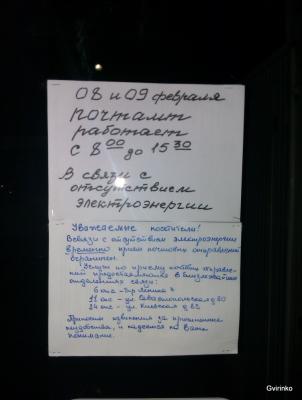 08 и 09 февраля
почтамт
работает
с 8 00 до 15 30
В связи с
отсутствием
электроэнергии
Уважаемые посетители!
В связи с отсутствием электроэнергии
временно прием почтовых отправлений
ограничен.
Услуги по приему почтовых отправле-
ний предоставляются в близлежайших
отделениях связи:
6 о/с - Ленина
11 о/с - ул. Севастопольская д
24 о/с - ул. Киевская д
Приносим извинения за причиненные
неудобства, и надеемся на Ваше
понимание.
Gvirinko